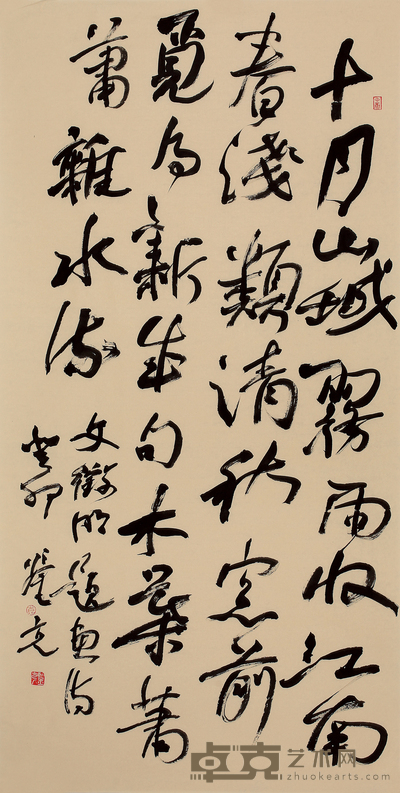 十月山城霧雨收江南
春淺類清秋窓前
覓得新成句木葉蕭
蕭雜水流
文徵明題画詩
癸卯
卓克艺术网
zhuokearts.com